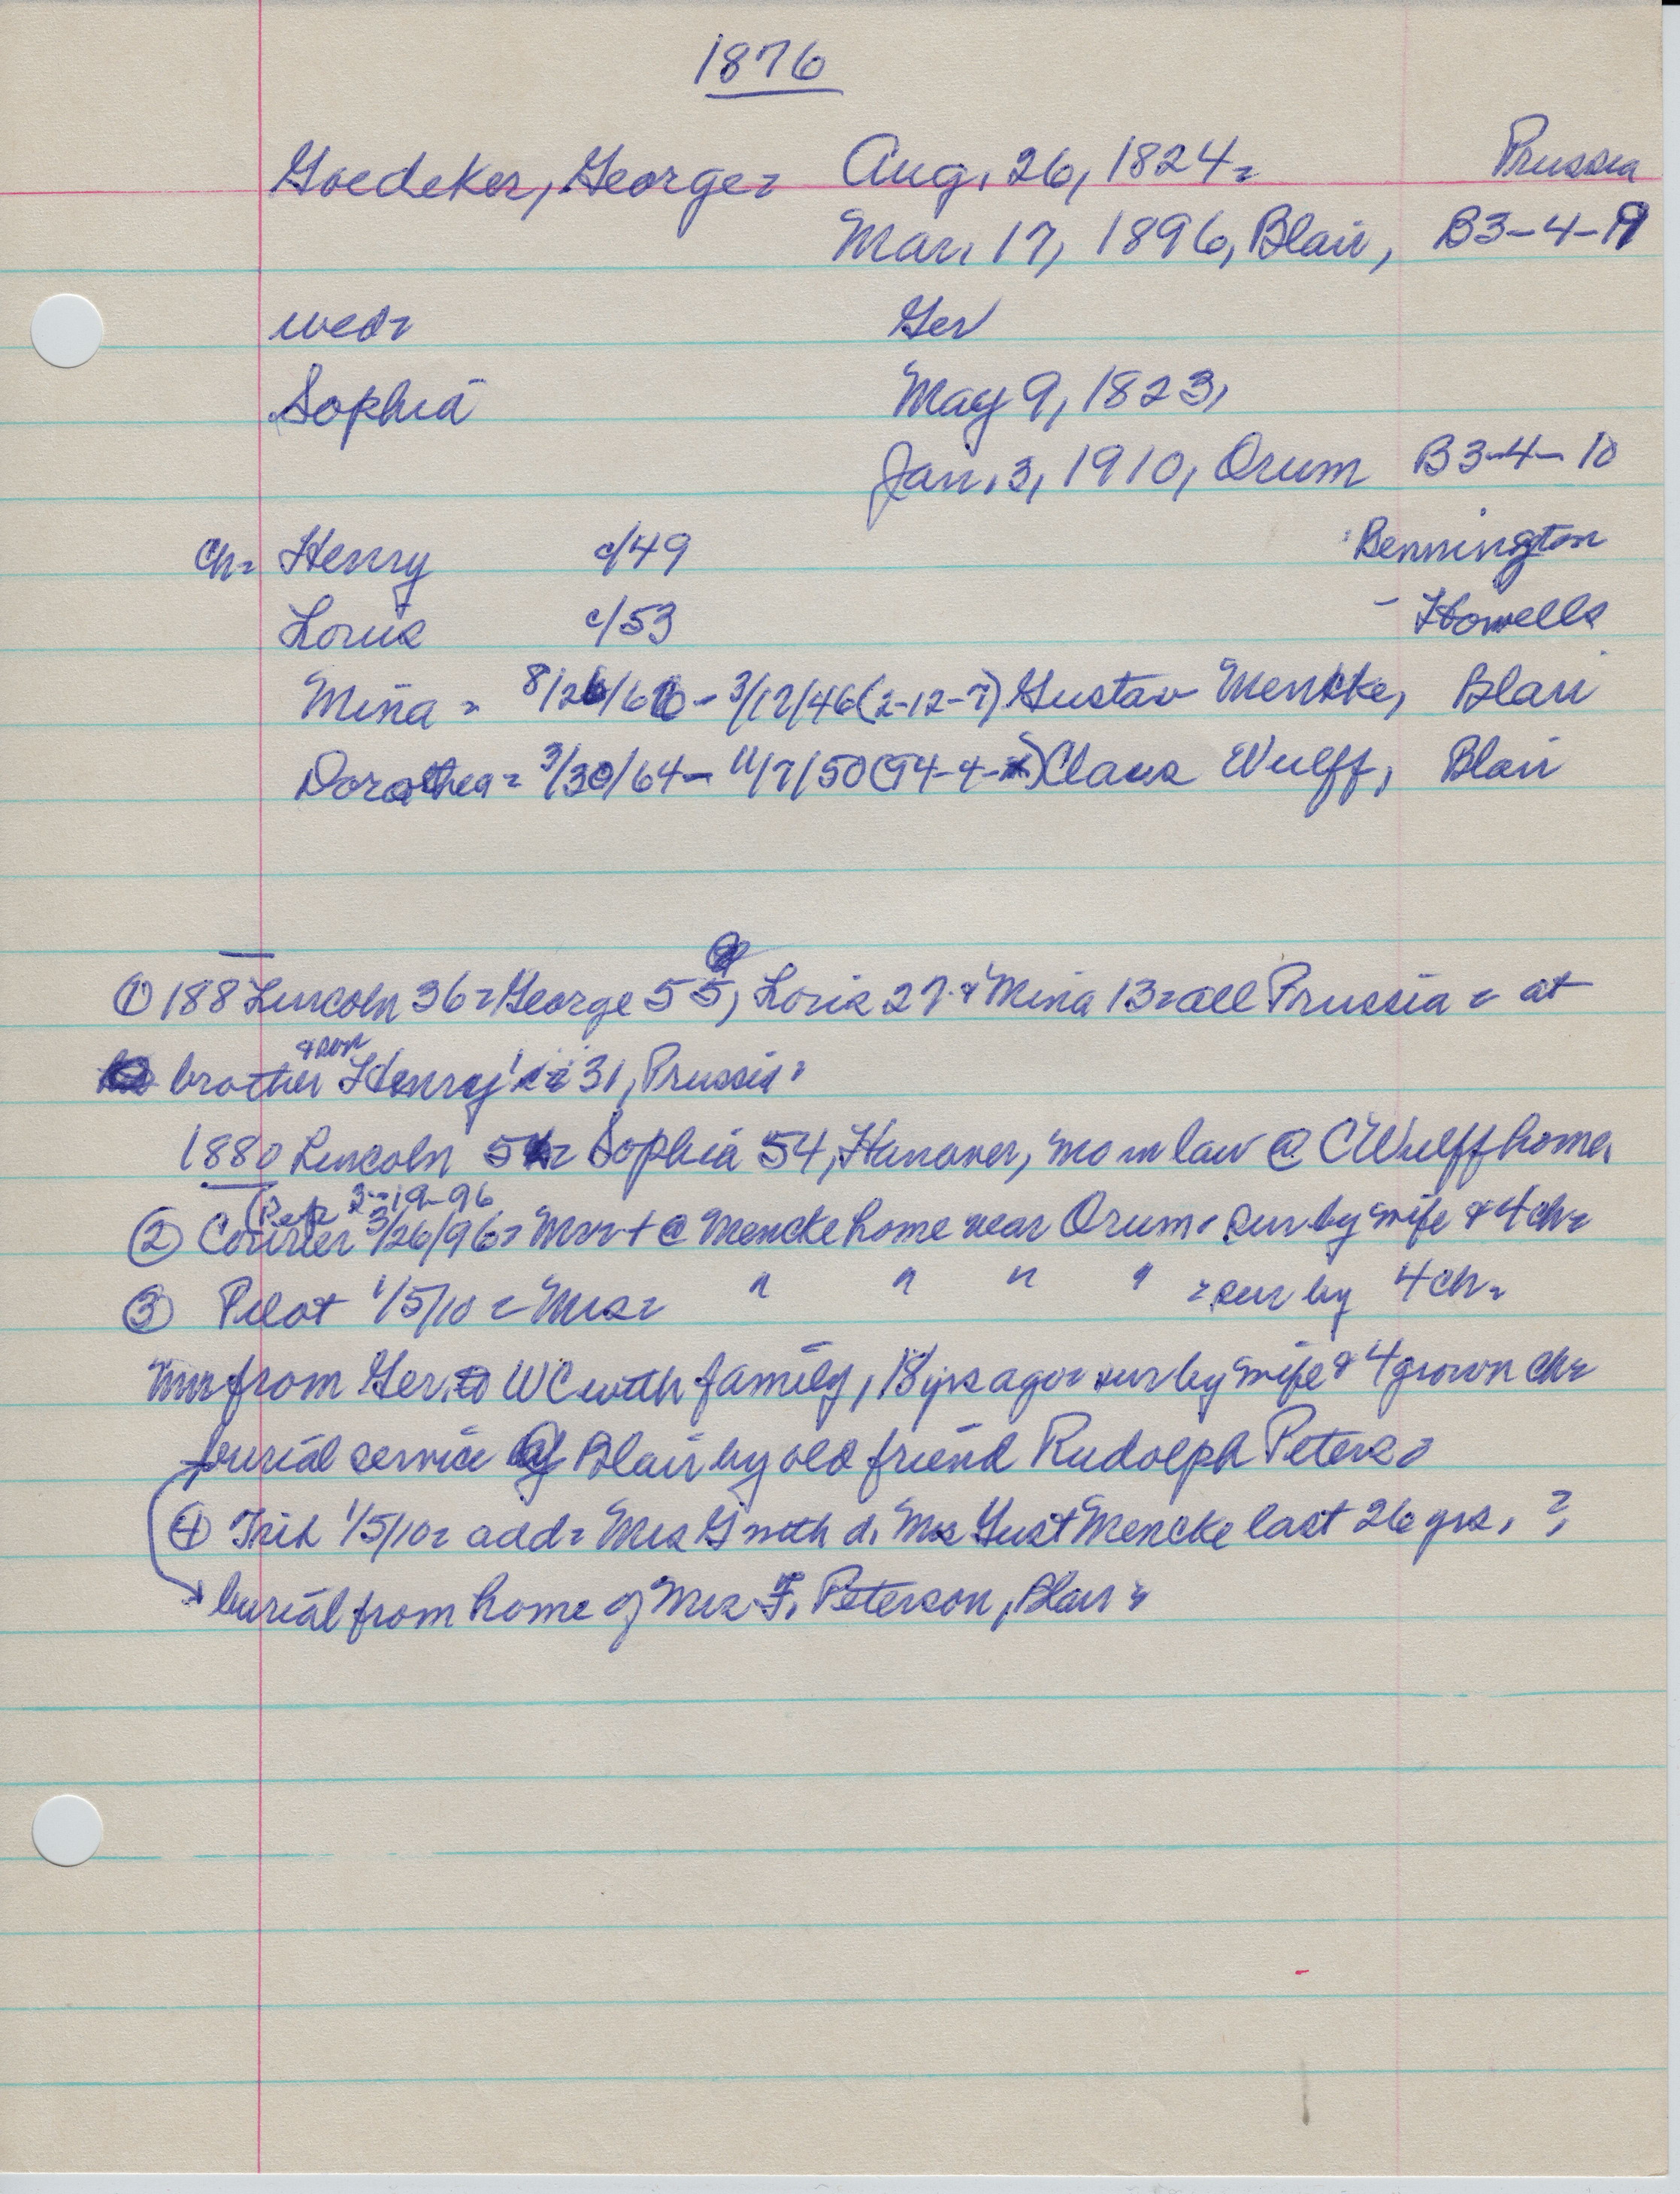 1876
Goedeker, George = Aug. 26, 1824 = Prussia
Mar. 17, 1896, Blair, B3-4-9
wed = Ger
Sophia May 9, 1823,
Jan. 3, 1910, Orum B3-4-10
ch = Henry c/49 Bennington
Louis c/53 - Howells
Mina = 8/26/66 - 3/17/46 (2-12-7) Gustav Mencke, Blair
Dorothea = 3/30/64 - 11/7/50 (94-4- ) Claus Wulff, Blair
① 188 Lincoln 36 = George 55, Louis 27 & Mina 13 = all Prussia = at
brother & son Henry's = 31, Prussia =
1880 Lincoln Sophia 54, Hanover, mo in law @ C Wulff home.
(Rep 3-19-96
② Courier 3/26/96 = Mr + @ Mencke home near Orum = sur by wife & 4 ch =
③ Pilot 1/5/10 = Mrs = " " " " = sur by 4 ch =
Mr from Ger. to WC with family, 18 yrs ago = sur by wife & 4 grown ch =
burial service @ Blair by old friend Rudolph Peters =
④ Trib 1/5/10 = add = Mrs G with d. Mrs Gust Mencke last 26 yrs. ?
burial from home of Mrs F. Peterson, Blair =